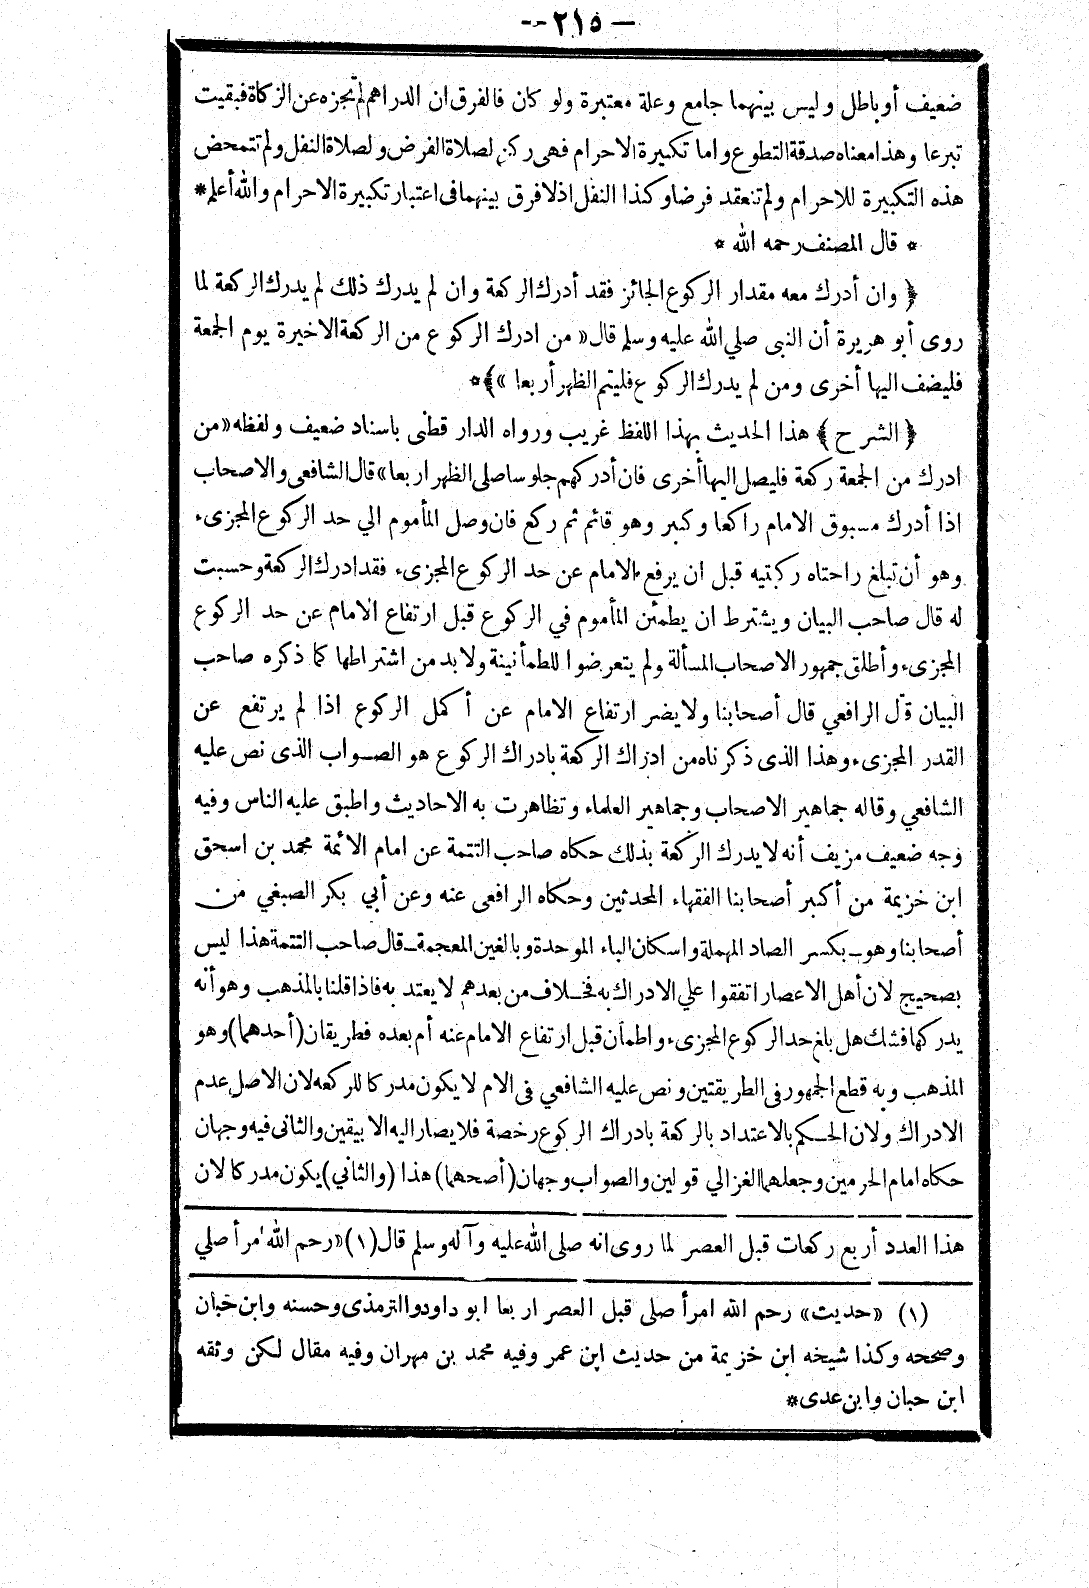 — ٢١٥ —
ضعيف أوباطل وليس بينهما جامع وعلة معتبرة ولو كان فالفرق ان الدراهم لم تجزه عن الزكاة فبقيت
تبرعا وهذا معناه صدقة التطوع واما تكبيرة الاحرام فهى ركن لصلاة الفرض ولصلاة النفل ولم تتمحض
هذه التكبيرة للاحرام ولم تنعقد فرضا وكذا النفل اذلا فرق بينهما فى اعتبار تكبيرة الاحرام والله أعلم*
* قال المصنف رحمه الله *
﴿ وان أدرك معه مقدار الركوع الجائز فقد أدرك الركعة وان لم يدرك ذلك لم يدرك الركعة لما
روى أبو هريرة أن النبى صلي الله عليه وسلم قال« من ادرك الركوع من الركعة الاخيرة يوم الجمعة
فليضف اليها أخرى ومن لم يدرك الركوع فليتم الظهر أربعا »﴾*
﴿ الشرح ﴾ هذا الحديث بهذا اللفظ غريب ورواه الدار قطنى باسناد ضعيف ولفظه «من
ادرك من الجمعة ركعة فليصل اليها أخرى فان أدركهم جلوسا صلى الظهر اربعا» قال الشافعى والاصحاب
اذا أدرك مسبوق الامام راكعا وكبر وهو قائم ثم ركع فان وصل المأموم الي حد الركوع المجزىء
وهو أن تبلغ راحتاه ركبتيه قبل ان يرفع الامام عن حد الركوع المجزىء فقد ادرك الركعة وحسبت
له قال صاحب البيان ويشترط ان يطمئن المأموم في الركوع قبل ارتفاع الامام عن حد الركوع
المجزىء وأطلق جمهور الاصحاب المسألة ولم يتعرضوا للطمأنينة ولا بد من اشتراطها كما ذكره صاحب
البيان قال الرافعي قال أصحابنا ولا يضر ارتفاع الامام عن أكمل الركوع اذا لم يرتفع عن
القدر المجزىء وهذا الذى ذكرناه من ادراك الركعة بادراك الركوع هو الصواب الذى نص عليه
الشافعي وقاله جماهير الاصحاب وجماهير العلماء وتظاهرت به الاحاديث واطبق عليه الناس وفيه
وجه ضعيف مزيف أنه لا يدرك الركعة بذلك حكاه صاحب التتمة عن امام الائمة محمد بن اسحق
ابن خزيمة من أكبر أصحابنا الفقهاء المحدثين وحكاه الرافعى عنه وعن أبي بكر الصبغي من
أصحابنا وهو - بكسر الصاد المهملة واسكان الباء الموحدة وبالغين المعجمة - قال صاحب التتمة هذا ليس
بصحيح لان أهل الاعصار اتفقوا علي الادراك به فخلاف من بعدهم لا يعتد به فاذا قلنا بالمذهب وهو أنه
يدركها فشك هل بلغ حد الركوع المجزىء واطمأن قبل ارتفاع الامام عنه أم بعده فطريقان (أحدهما) وهو
المذهب وبه قطع الجمهور فى الطريقتين ونص عليه الشافعي فى الام لا يكون مدركا للركعه لان الاصل عدم
الادراك ولان الحكم بالاعتداد بالركعة بادراك الركوع رخصة فلا يصار اليه الا بيقين والثانى فيه وجهان
حكاه امام الحرمين وجعلهما الغزالي قولين والصواب وجهان (أصحهما) هذا (والثاني) يكون مدركا لان
هذا العدد أربع ركعات قبل العصر لما روى انه صلى الله عليه وآله وسلم قال (١) «رحم الله امرأ صلي
(١) «حديث» رحم الله امرأ صلى قبل العصر اربعا ابو داود والترمذى وحسنه وابن حبان
وصححه وكذا شيخه ابن خزيمة من حديث ابن عمر وفيه محمد بن مهران وفيه مقال لكن وثقه
ابن حبان وابن عدى*